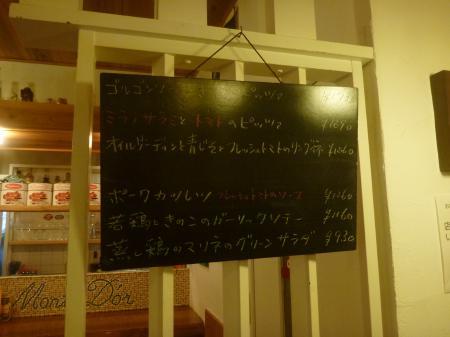 ゴルゴン ピッツァ
ミラノサラミとトマトのピッツァ
オイルサーディンと青じそとフレッシュトマトのリングイネ
ポークカツレツ フレッシュトマトのソース ¥1260
若鶏ときのこのガーリックソテー ¥1160
蒸し鶏のマリネのグリーンサラダ ¥930
Mona D'or